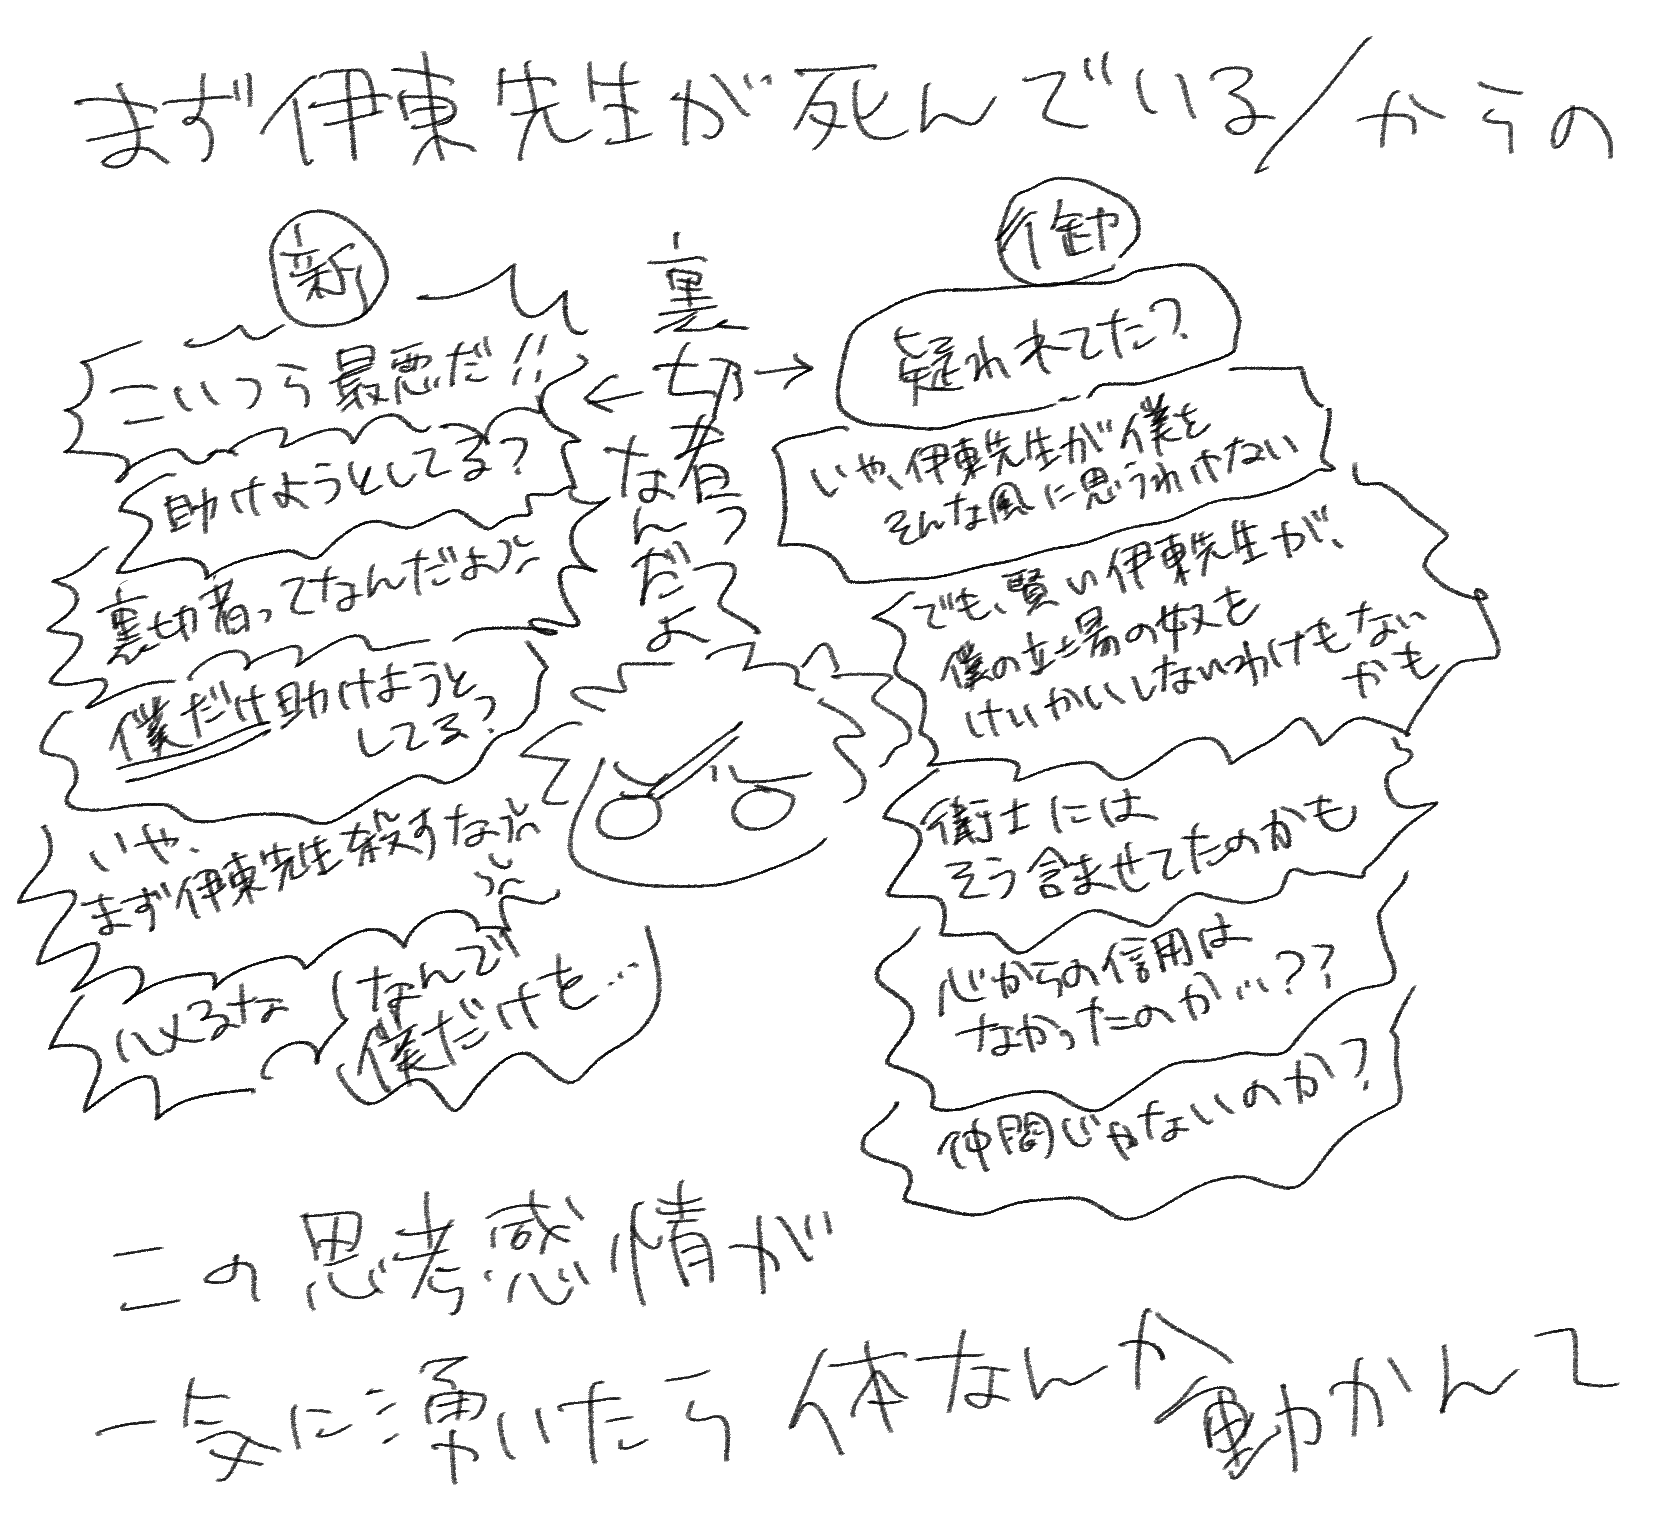 まず伊東先生が死んでいる/からの
新
こいつら最悪だ!!
助けようとしてる?
裏切者ってなんだよ
僕だけ助けようと
してる?
いや、
まず伊東先生殺すな
以るな
なんで
僕だけを…
裏切者って
なんだよ
疑われてた?
いや、伊東先生が僕を
そんな風に思うわけない
でも、賢い伊東先生が、
僕の立場の奴を
けいかいしないわけもない
かも
衛士には
そう含ませてたのかも
心からの信用は
なかったのか…??
仲間じゃないのか?
この思考感情が
一気に湧いたら体なんか動かんて